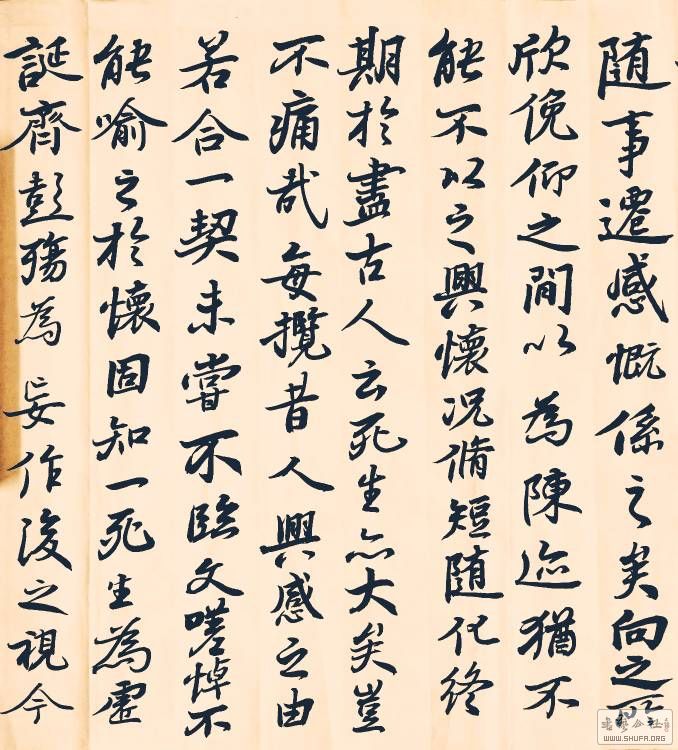 随事遷感慨係之矣向之所
欣俛仰之間以為陳迹猶不
能不以之興懷况脩短随化終
期於盡古人云死生亦大矣豈
不痛哉每攬昔人興感之由
若合一契未嘗不臨文嗟悼不
能喻之於懷固知一死生為虚
誕齊彭殤為妄作後之視今
WWW.SHUFA.ORG